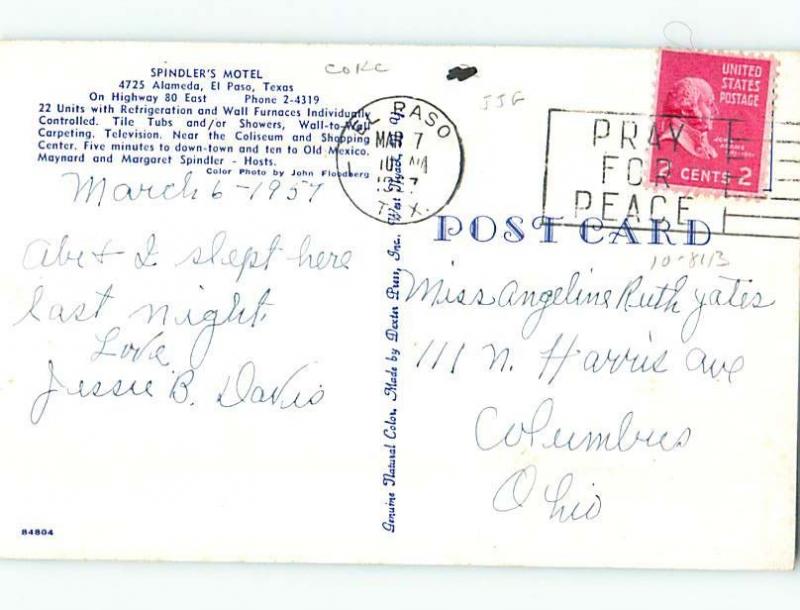 SPINDLER'S MOTEL
4725 Alameda, El Paso, Texas
On Highway 80 East Phone 2-4319
22 Units with Refrigeration and Wall Furnaces Individually
Controlled. Tile Tubs and/or Showers, Wall-to-Wall
Carpeting. Television. Near the Coliseum and Shopping
Center. Five minutes to down-town and ten to Old Mexico.
Maynard and Margaret Spindler - Hosts.
Color Photo by John Floodberg
March 6-1957
Abe & I slept here
last night
Love
Jessie B. Davis
84804
Genuine Natural Color. Made by Dexter Press, Inc. West Nyack, NY
JJG
EL PASO
MAR 7
TEX.
PRAY
FOR
PEACE
UNITED
STATES
POSTAGE
JOHN
ADAMS
2 CENTS 2
POST CARD
10-81B
Miss Angeline Ruth Yates
111 N. Harris Ave
Columbus
Ohio